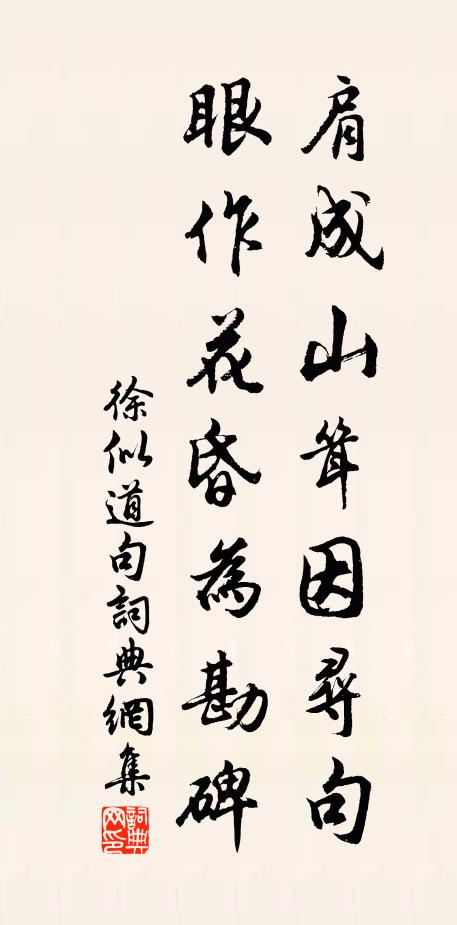 肩成山耸因尋句
眼作花昏為勘碑
徐似道句詞典網集
詞典网印